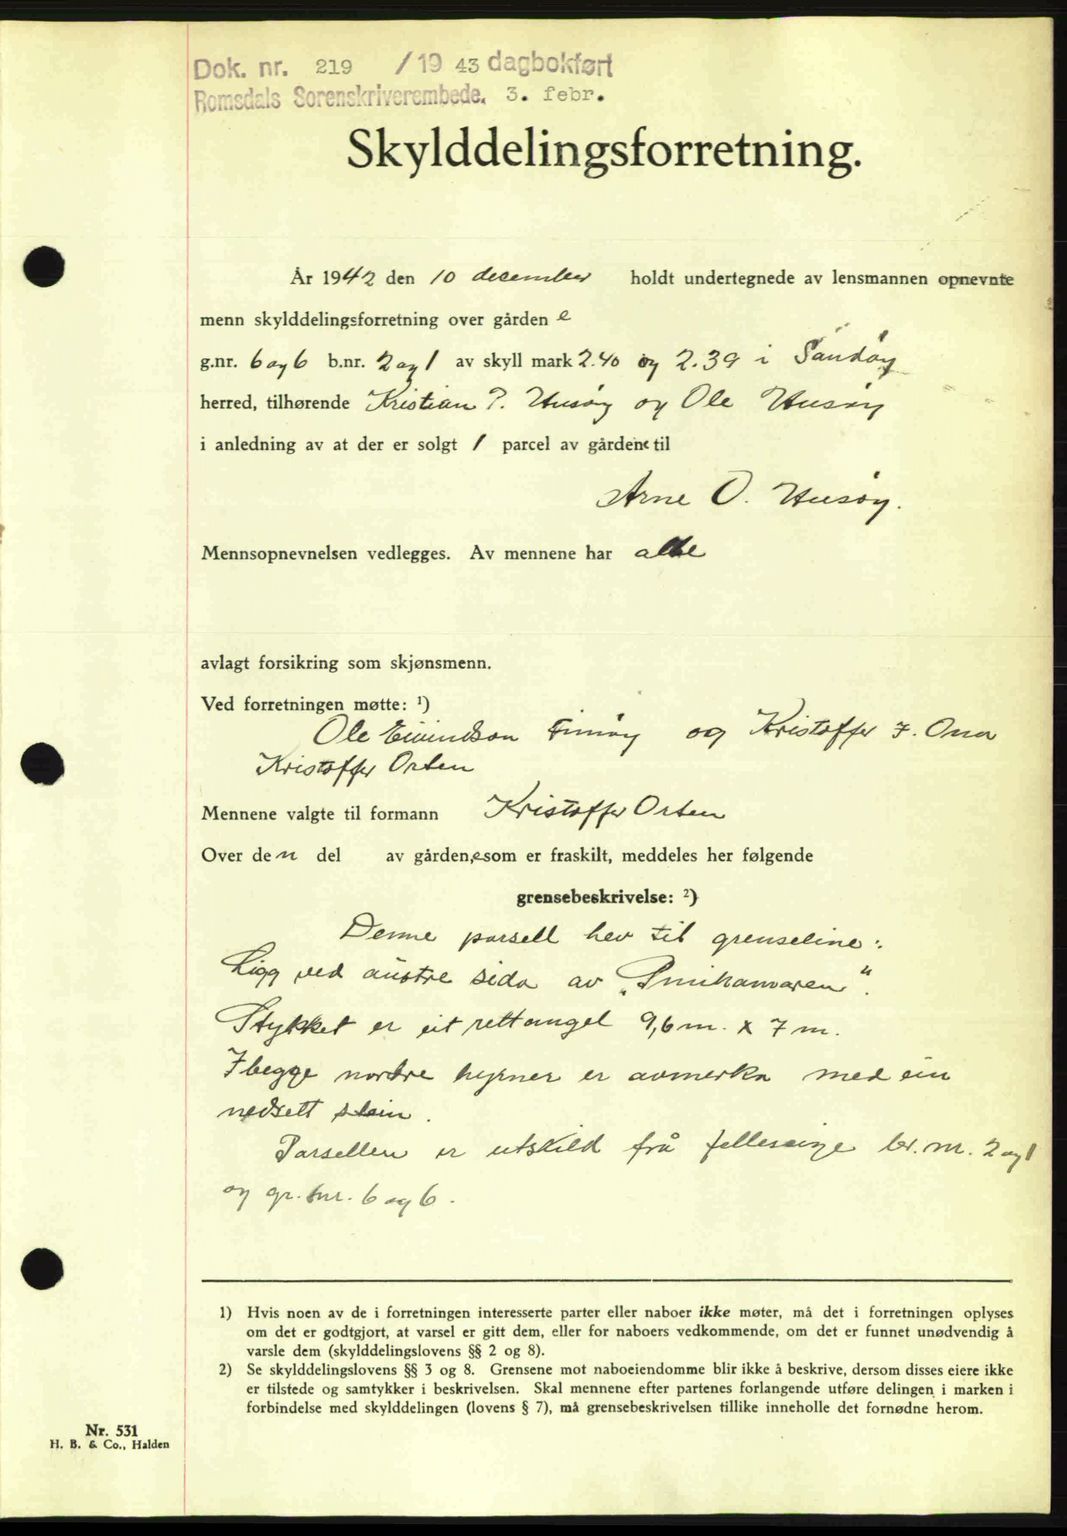 Dok. nr. 219 /1943 dagbokført
Romsdals Sorenskriverembede. 3. febr.
Skylddelingsforretning.
År 1942 den 10 december holdt undertegnede av lensmannen opnevnte
menn skylddelingsforretning over gården e
g.nr. 6 og 6 b.nr. 2 og 1 av skyll mark 2.40 og 2.39 i Sandøy
herred, tilhørende Kristian P. Husøy og Ole Husøy
i anledning av at der er solgt 1 parcel av gårdene til
Arne O. Husøy.
Mennsopnevnelsen vedlegges. Av mennene har alle
avlagt forsikring som skjønsmenn.
Ved forretningen møtte: ¹)
Ole Eivindson Finøy og Kristoffer J. Ona
Kristoffer Orten
Mennene valgte til formann Kristoffer Orten
Over den del av gården,e som er fraskilt, meddeles her følgende
grensebeskrivelse: ²)
Denne parsell hev til grenseline:
Ligg ved austre sida av
Stykket er eit rettangel 9,6 m. x 7 m.
I begge nordre hyrner er avmerka med ein
nedsett stein.
Parsellen er utskild frå felleseige br. nr. 2 og 1
og gr. nr. 6 og 6.
1) Hvis noen av de i forretningen interesserte parter eller naboer ikke møter, må det i forretningen oplyses
om det er godtgjort, at varsel er gitt dem, eller for naboers vedkommende, om det er funnet unødvendig å
varsle dem (skylddelingslovens §§ 2 og 8).
2) Se skylddelingslovens §§ 3 og 8. Grensene mot naboeiendomme blir ikke å beskrive, dersom disses eiere ikke
er tilstede og samtykker i beskrivelsen. Skal mennene efter partenes forlangende utføre delingen i marken i
forbindelse med skylddelingen (lovens § 7), må grensebeskrivelsen tillike inneholle det fornødne herom.
Nr. 531
H. B. & Co., Halden